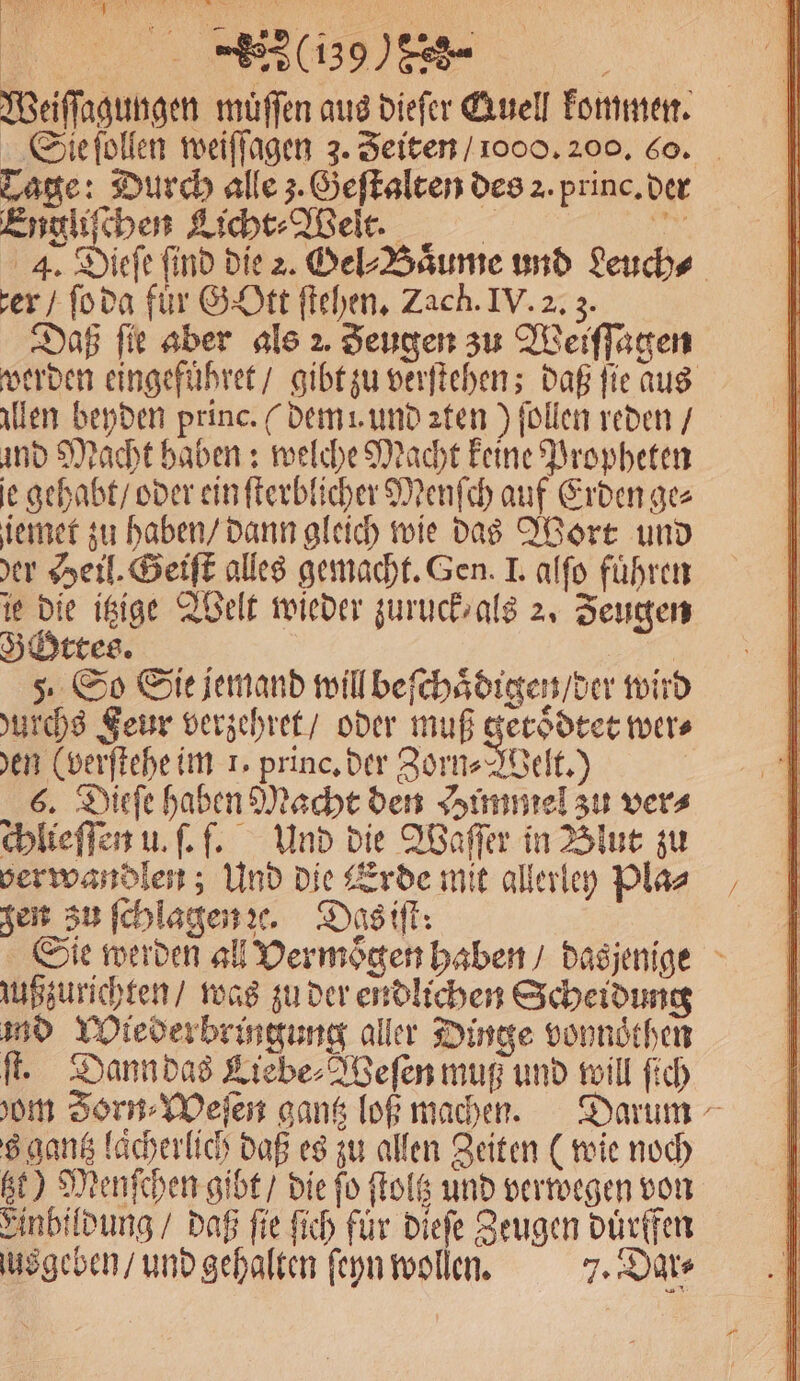 (139)
Weiſſagungen muͤſſen aus dieſer Quell kommen.
Sie ſollen weiſſagen 3. Zeiten / 1000. 200. 60.
Tage: Durch alle 3. Geſtalten des 2. princ. der
Engliſchen Licht-Welt.
4. Dieſe ſind die 2. Oel-Baͤume und Leuch-
ter / ſo da fuͤr GOtt ſtehen. Zach. IV. 2. 3.
Daß ſie aber als 2. Zeugen zu Weiſſagen
werden eingefuͤhret / gibt zu verſtehen; daß ſie aus
allen beyden princ. (dem 1. und 2ten) ſollen reden /
und Macht haben: welche Macht keine Propheten
je gehabt / oder ein ſterblicher Menſch auf Erden ge-
ziemet zu haben / dann gleich wie das Wort und
der Heil. Geiſt alles gemacht. Gen. I. alſo fuͤhren
ſie die itzige Welt wieder zuruck-als 2. Zeugen
GOttes.
5. So Sie jemand will beſchaͤdigen / der wird
durchs Feur verzehret / oder muß getoͤdtet wer-
den (verſtehe im 1. princ. der Zorn-Welt.)
6. Dieſe haben Macht den Himmel zu ver-
ſchlieſſen u. ſ. f. Und die Waſſer in Blut zu
verwandlen; Und die Erde mit allerley Pla-
gen zu ſchlagen ꝛc. Das iſt:
Sie werden all Vermoͤgen haben / dasjenige
außzurichten / was zu der endlichen Scheidung
und Wiederbringung aller Dinge vonnoͤthen
iſt. Dann das Liebe-Weſen muß und will ſich
vom Zorn-Weſen gantz loß machen. Darum
es gantz laͤcherlich daß es zu allen Zeiten (wie noch
itzt) Menſchen gibt / die ſo ſtoltz und verwegen von
Einbildung / daß ſie ſich fuͤr dieſe Zeugen duͤrffen
ausgeben / und gehalten ſeyn wollen. 7. Dar-